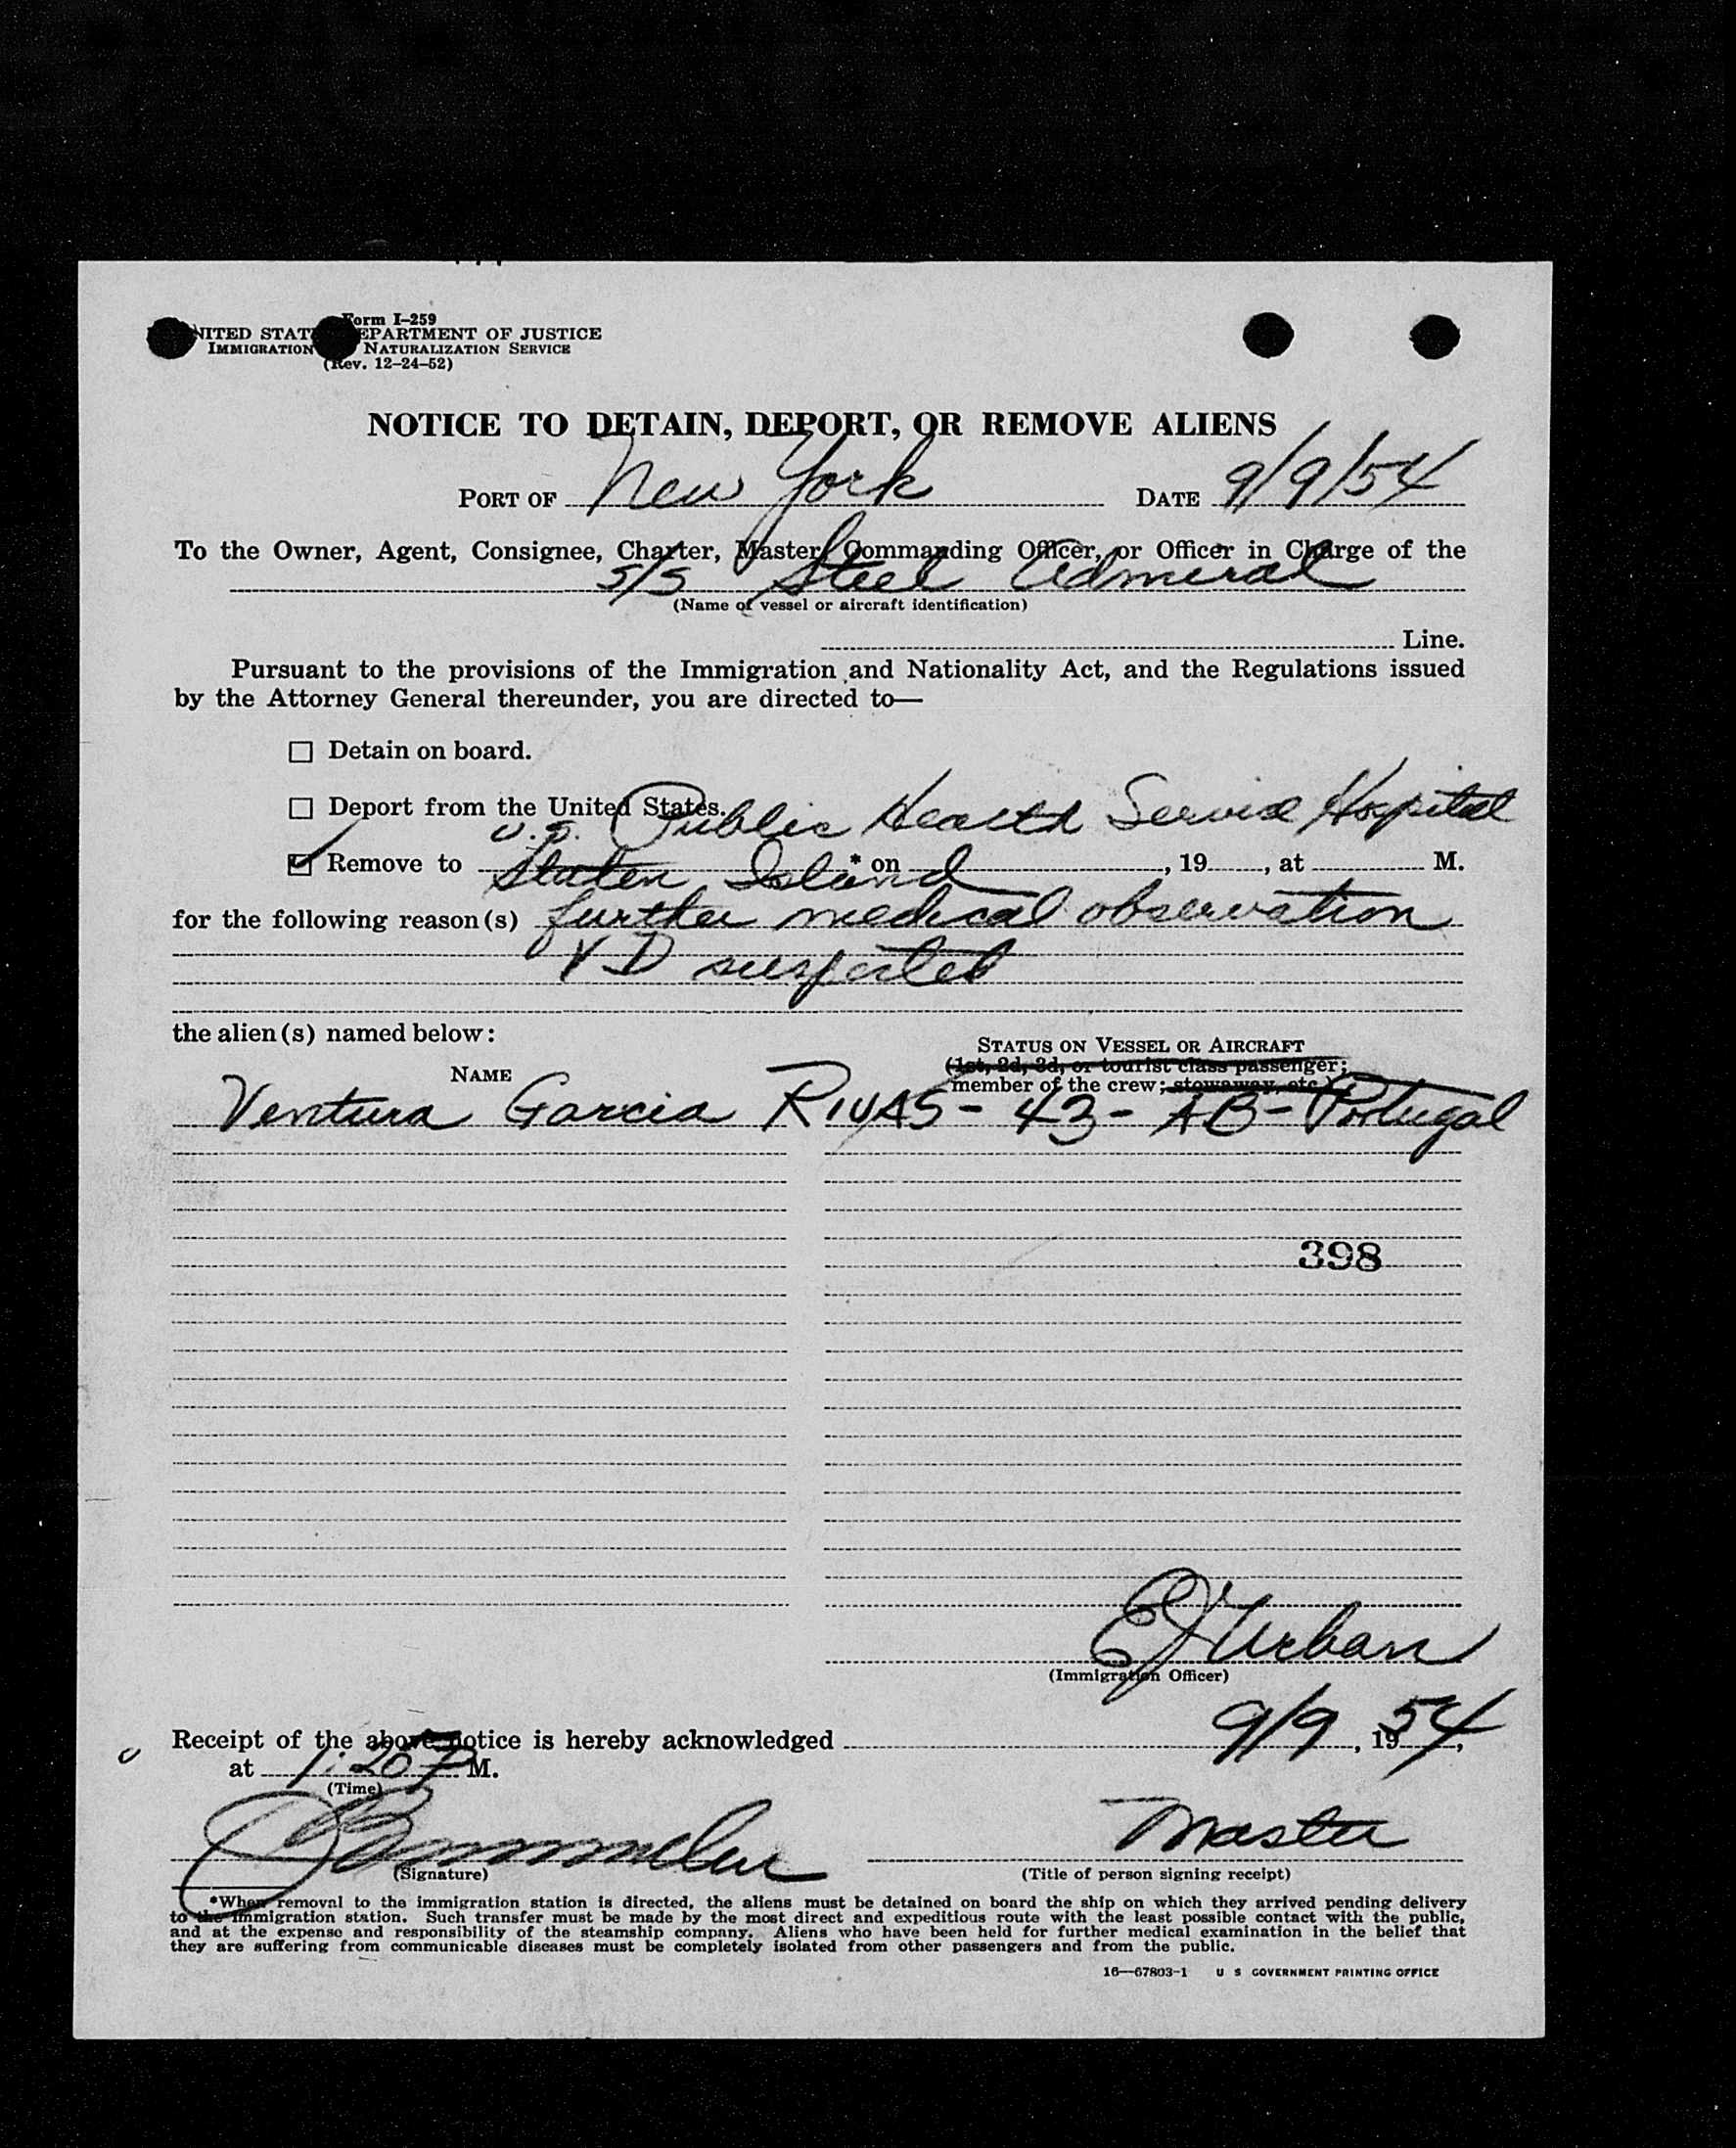 Form I-259
UNITED STATES DEPARTMENT OF JUSTICE
IMMIGRATION NATURALIZATION SERVICE
(Rev. 12-24-52)
NOTICE TO DETAIN, DEPORT, OR REMOVE ALIENS
PORT OF New York DATE 9/9/54
To the Owner, Agent, Consignee, Charter, Master, Commanding Officer, or Officer in Charge of the
S/S Steel Admiral
(Name of vessel or aircraft identification)
Line.
Pursuant to the provisions of the Immigration and Nationality Act, and the Regulations issued
by the Attorney General thereunder, you are directed to—
☐ Detain on board.
☐ Deport from the United States.
U.S. Public Health Service Hospital
☑ Remove to Staten Island * on , 19 , at M.
for the following reason(s) further medical observation
VD suspected
the alien(s) named below:
STATUS ON VESSEL OR AIRCRAFT
(1st, 2d, 3d, or tourist class passenger;
NAME member of the crew; stowaway, etc.)
Ventura Garcia RIVAS - 43 - AB - Portugal
398
EJ Urban
(Immigration Officer)
Receipt of the above notice is hereby acknowledged 9/9, 1954,
at 1:20 P M.
(Time)
Master
(Signature) (Title of person signing receipt)
*When removal to the immigration station is directed, the aliens must be detained on board the ship on which they arrived pending delivery
to the immigration station. Such transfer must be made by the most direct and expeditious route with the least possible contact with the public,
and at the expense and responsibility of the steamship company. Aliens who have been held for further medical examination in the belief that
they are suffering from communicable diseases must be completely isolated from other passengers and from the public.
16—67803-1 U S GOVERNMENT PRINTING OFFICE